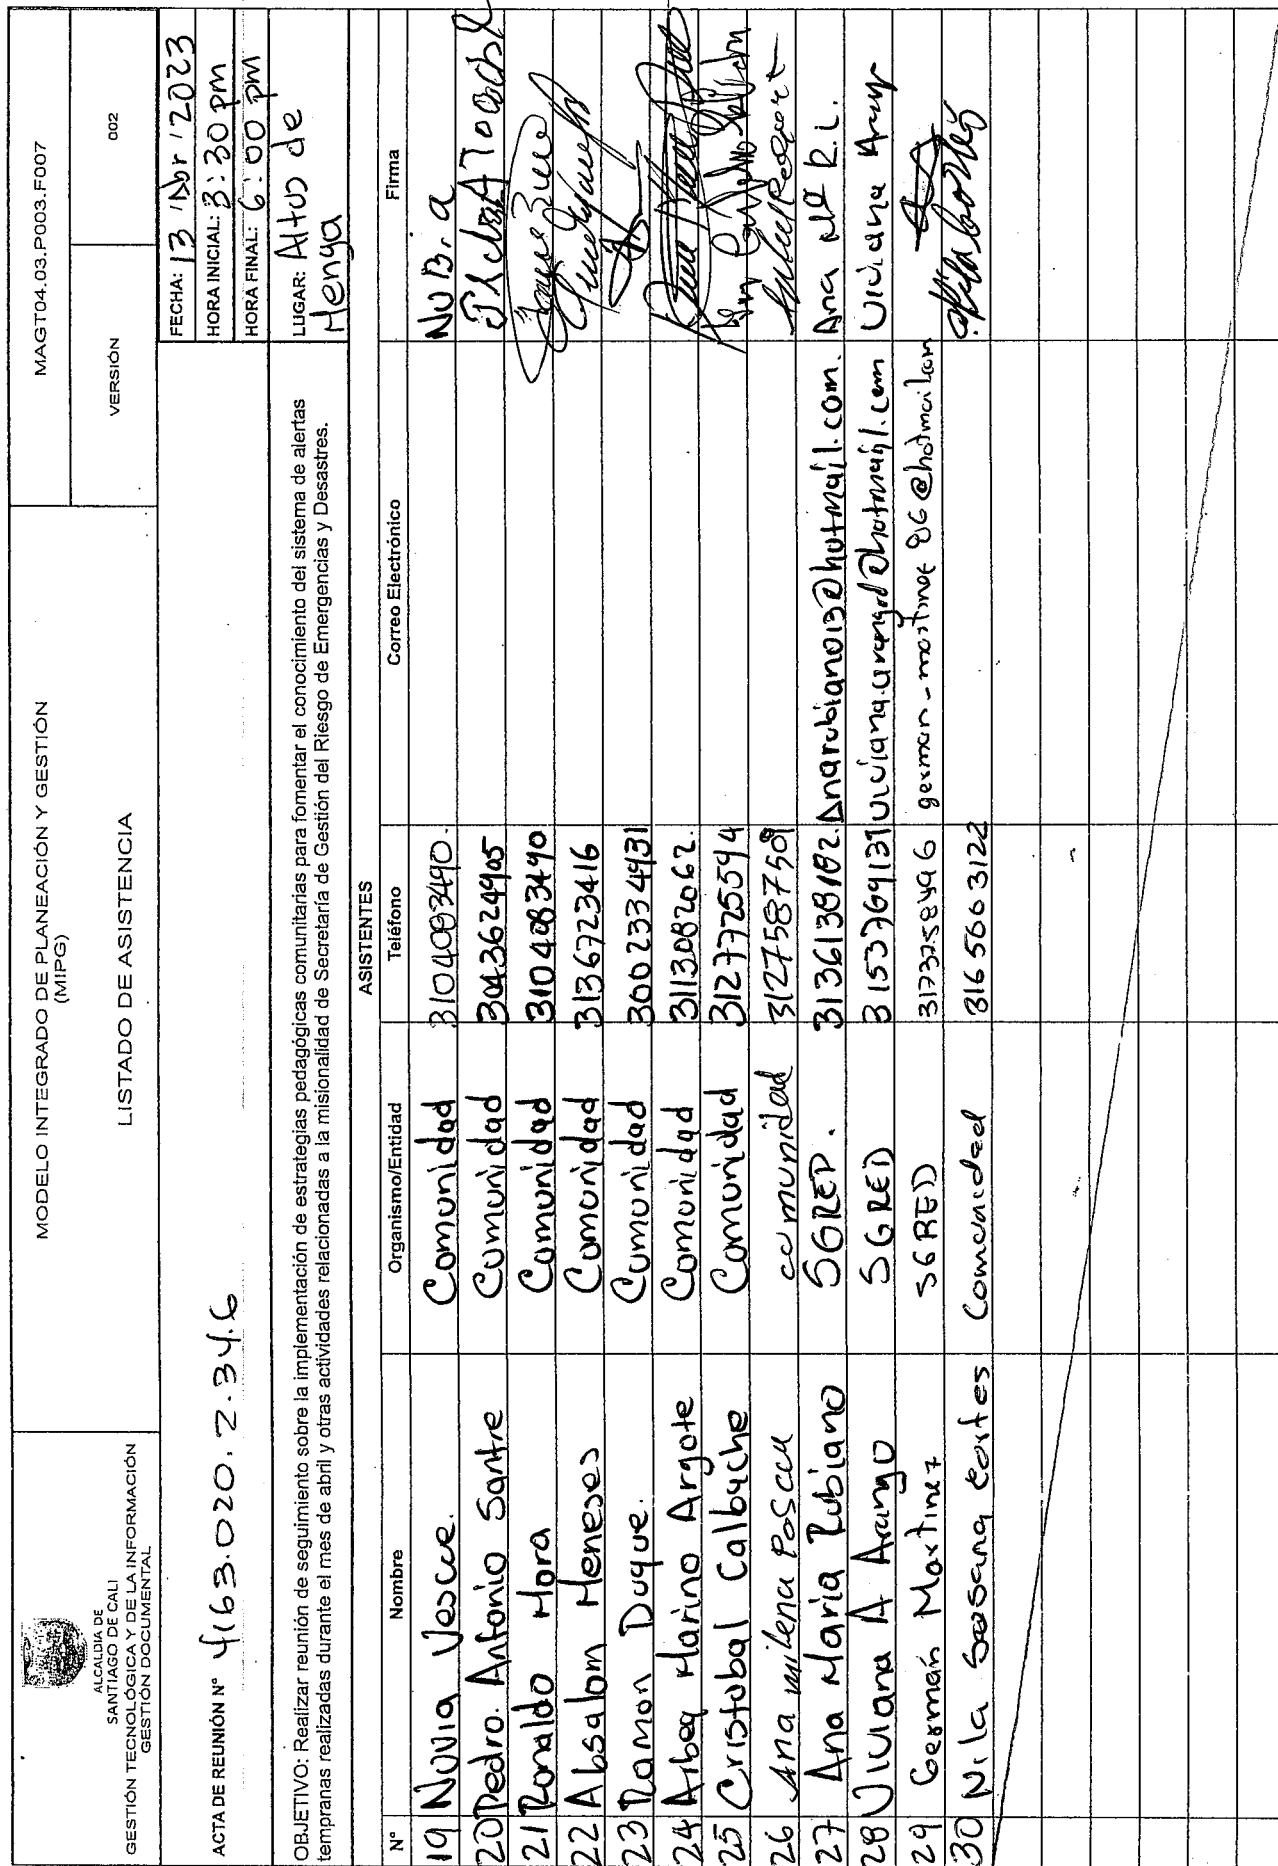 ALCALDIA DE
SANTIAGO DE CALI
GESTIÓN TECNOLÓGICA Y DE LA INFORMACIÓN
GESTIÓN DOCUMENTAL
MODELO INTEGRADO DE PLANEACIÓN Y GESTIÓN
(MIPG)
LISTADO DE ASISTENCIA
MAGT04.03.P003.F007
VERSIÓN 002
ACTA DE REUNIÓN N° 4163.020.2.34.6
FECHA: 13 Abr 2023
HORA INICIAL: 3:30 pm
HORA FINAL: 6:00 pm
LUGAR: Altos de
Menga
OBJETIVO: Realizar reunión de seguimiento sobre la implementación de estrategias pedagógicas comunitarias para fomentar el conocimiento del sistema de alertas
tempranas realizadas durante el mes de abril y otras actividades relacionadas a la misionalidad de Secretaría de Gestión del Riesgo de Emergencias y Desastres.
ASISTENTES
N° Nombre Organismo/Entidad Teléfono Correo Electrónico Firma
19 Nuvia Comunidad NuB.a
20 Pedro. Antonio Comunidad 3043624905
21 Ronaldo Mora Comunidad 3104083490
22 Absalom Meneses Comunidad 3136723416
23 Ramon Duque. Comunidad 3002334931
24 Marino Argote Comunidad 3113082062.
25 Cristobal Calbache Comunidad 3127725594
26 Ana milena comunidad 3127587509
27 Ana Maria Rubiano SGRED. 3136138182. Anarubiano13@hotmail.com. Ana Mª R.L.
28 Viviana A Arango SGRED 3153769131 Viviana
29 Germán Martinez SGRED
30 Nila Comunidad 3165663122